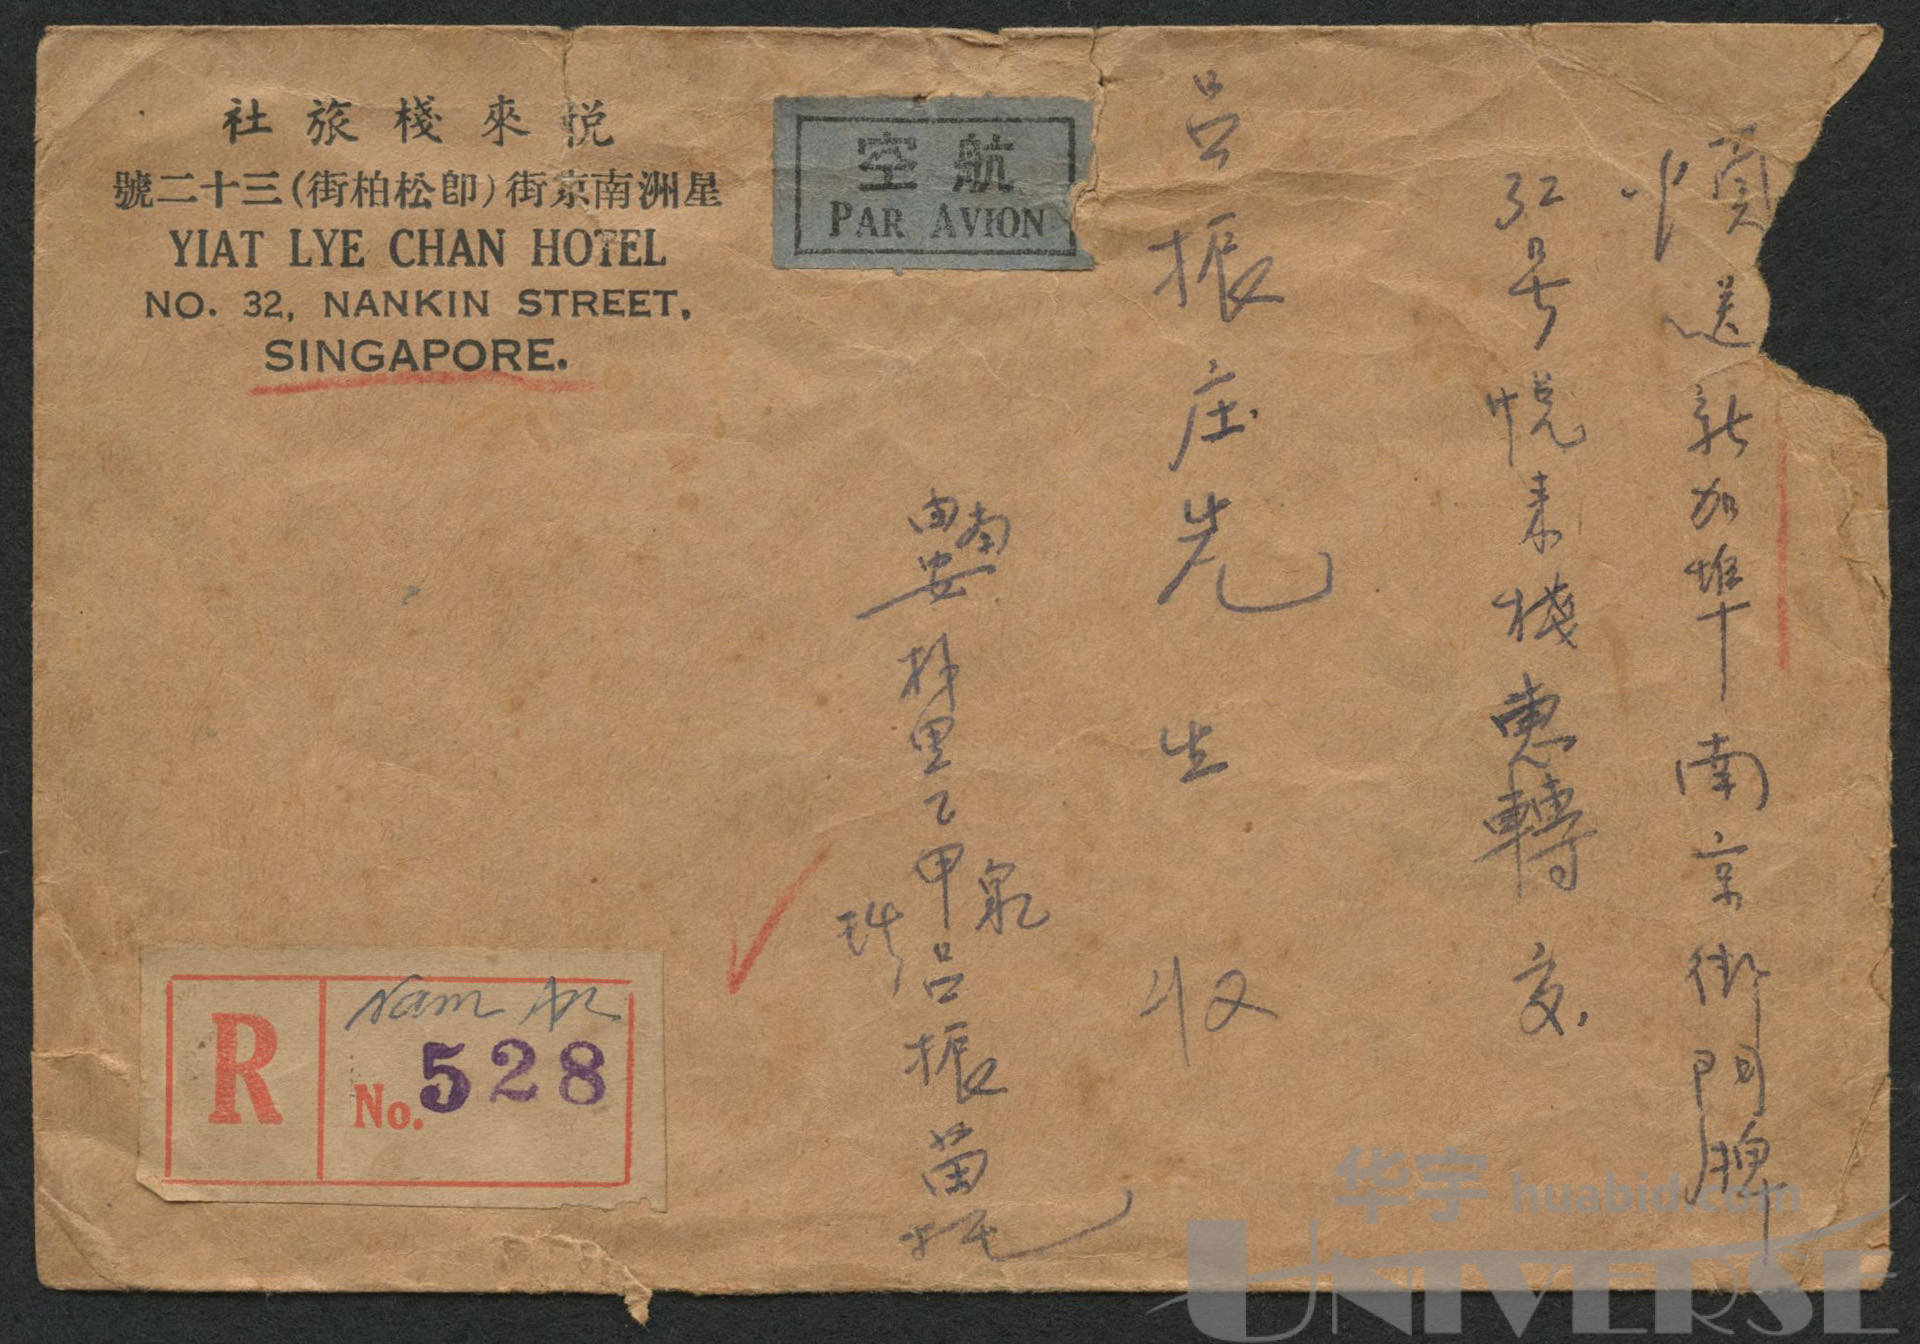 悅來棧旅社
星洲南京街(卽松柏街)三十二號
YIAT LYE CHAN HOTEL
NO. 32, NANKIN STREET,
SINGAPORE.
航空
PAR AVION
煩送新加埠南京街門牌
32号悅来棧惠轉交
呂振庄先生收
由南安
里乙甲呂振苗托
泉
R
Nam An
No. 528
华宇 huabid.com
UNIVERSE